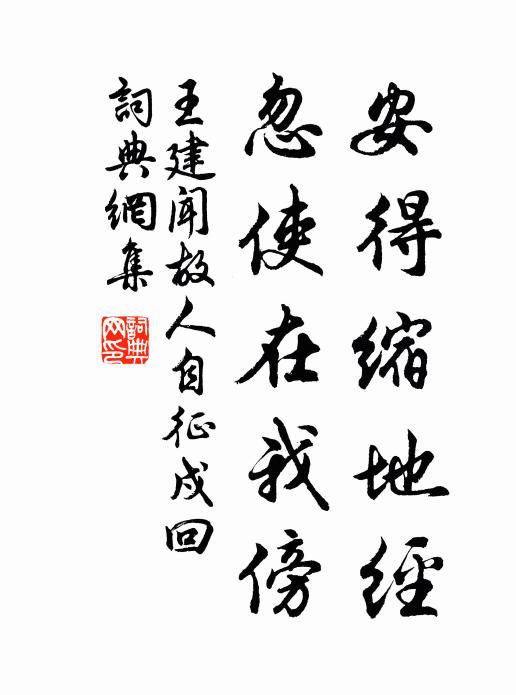 安得縮地經
忽使在我傍
王建聞故人自征戍回
詞典網集
詞典网印